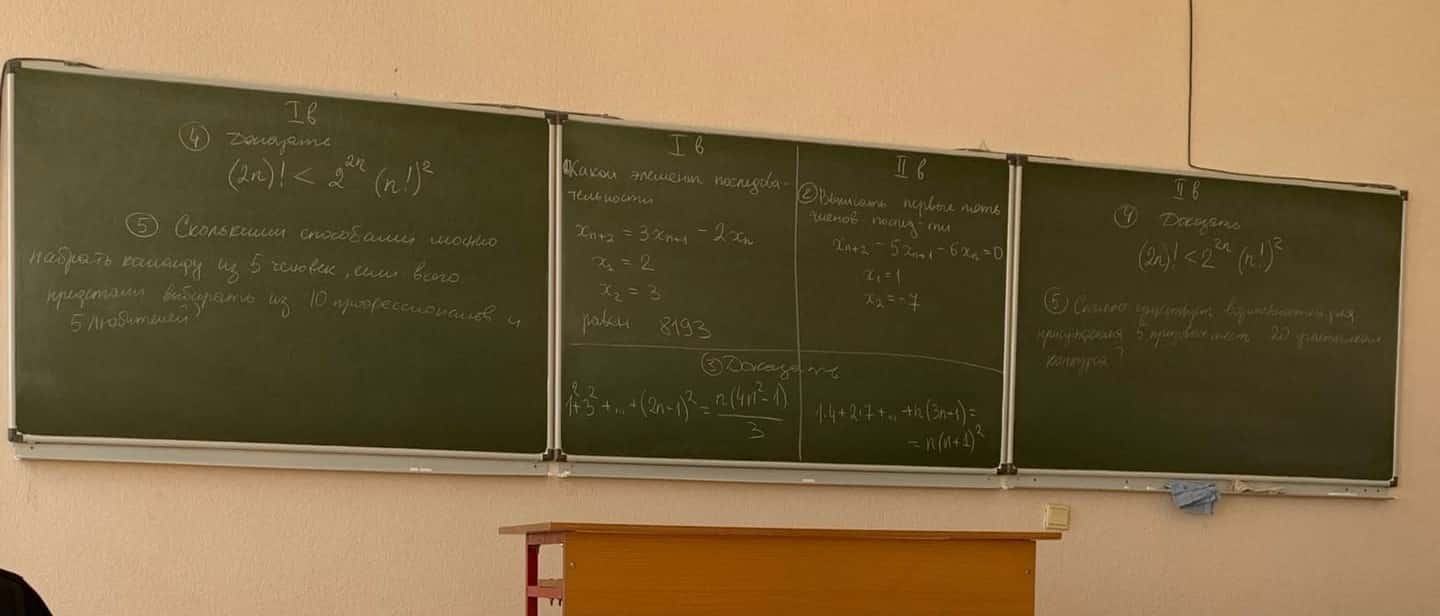 I в
④ Доказать
(2n)! < 2^{2n} (n!)^2
⑤ Сколькими способами можно
набрать команду из 5 человек, если всего
предстоит выбирать из 10 профессионалов и
5 любителей?
I в
Какой элемент последова-
тельности
x_{n+2} = 3x_{n+1} - 2x_n
x_1 = 2
x_2 = 3
равен 8193
II в
② Выписать первые пять
членов послед-ти
x_{n+2} - 5x_{n+1} - 6x_n = 0
x_1 = 1
x_2 = -7
③ Доказать
1^2 + 3^2 + ... + (2n-1)^2 = \frac{n(4n^2-1)}{3}
1·4 + 2·7 + ... + n(3n+1) =
= n(n+1)^2
II в
④ Доказать
(2n)! < 2^{2n} (n!)^2
⑤ Сколько существует для
присуждения 5 призовых мест 20 участникам
конкурса?